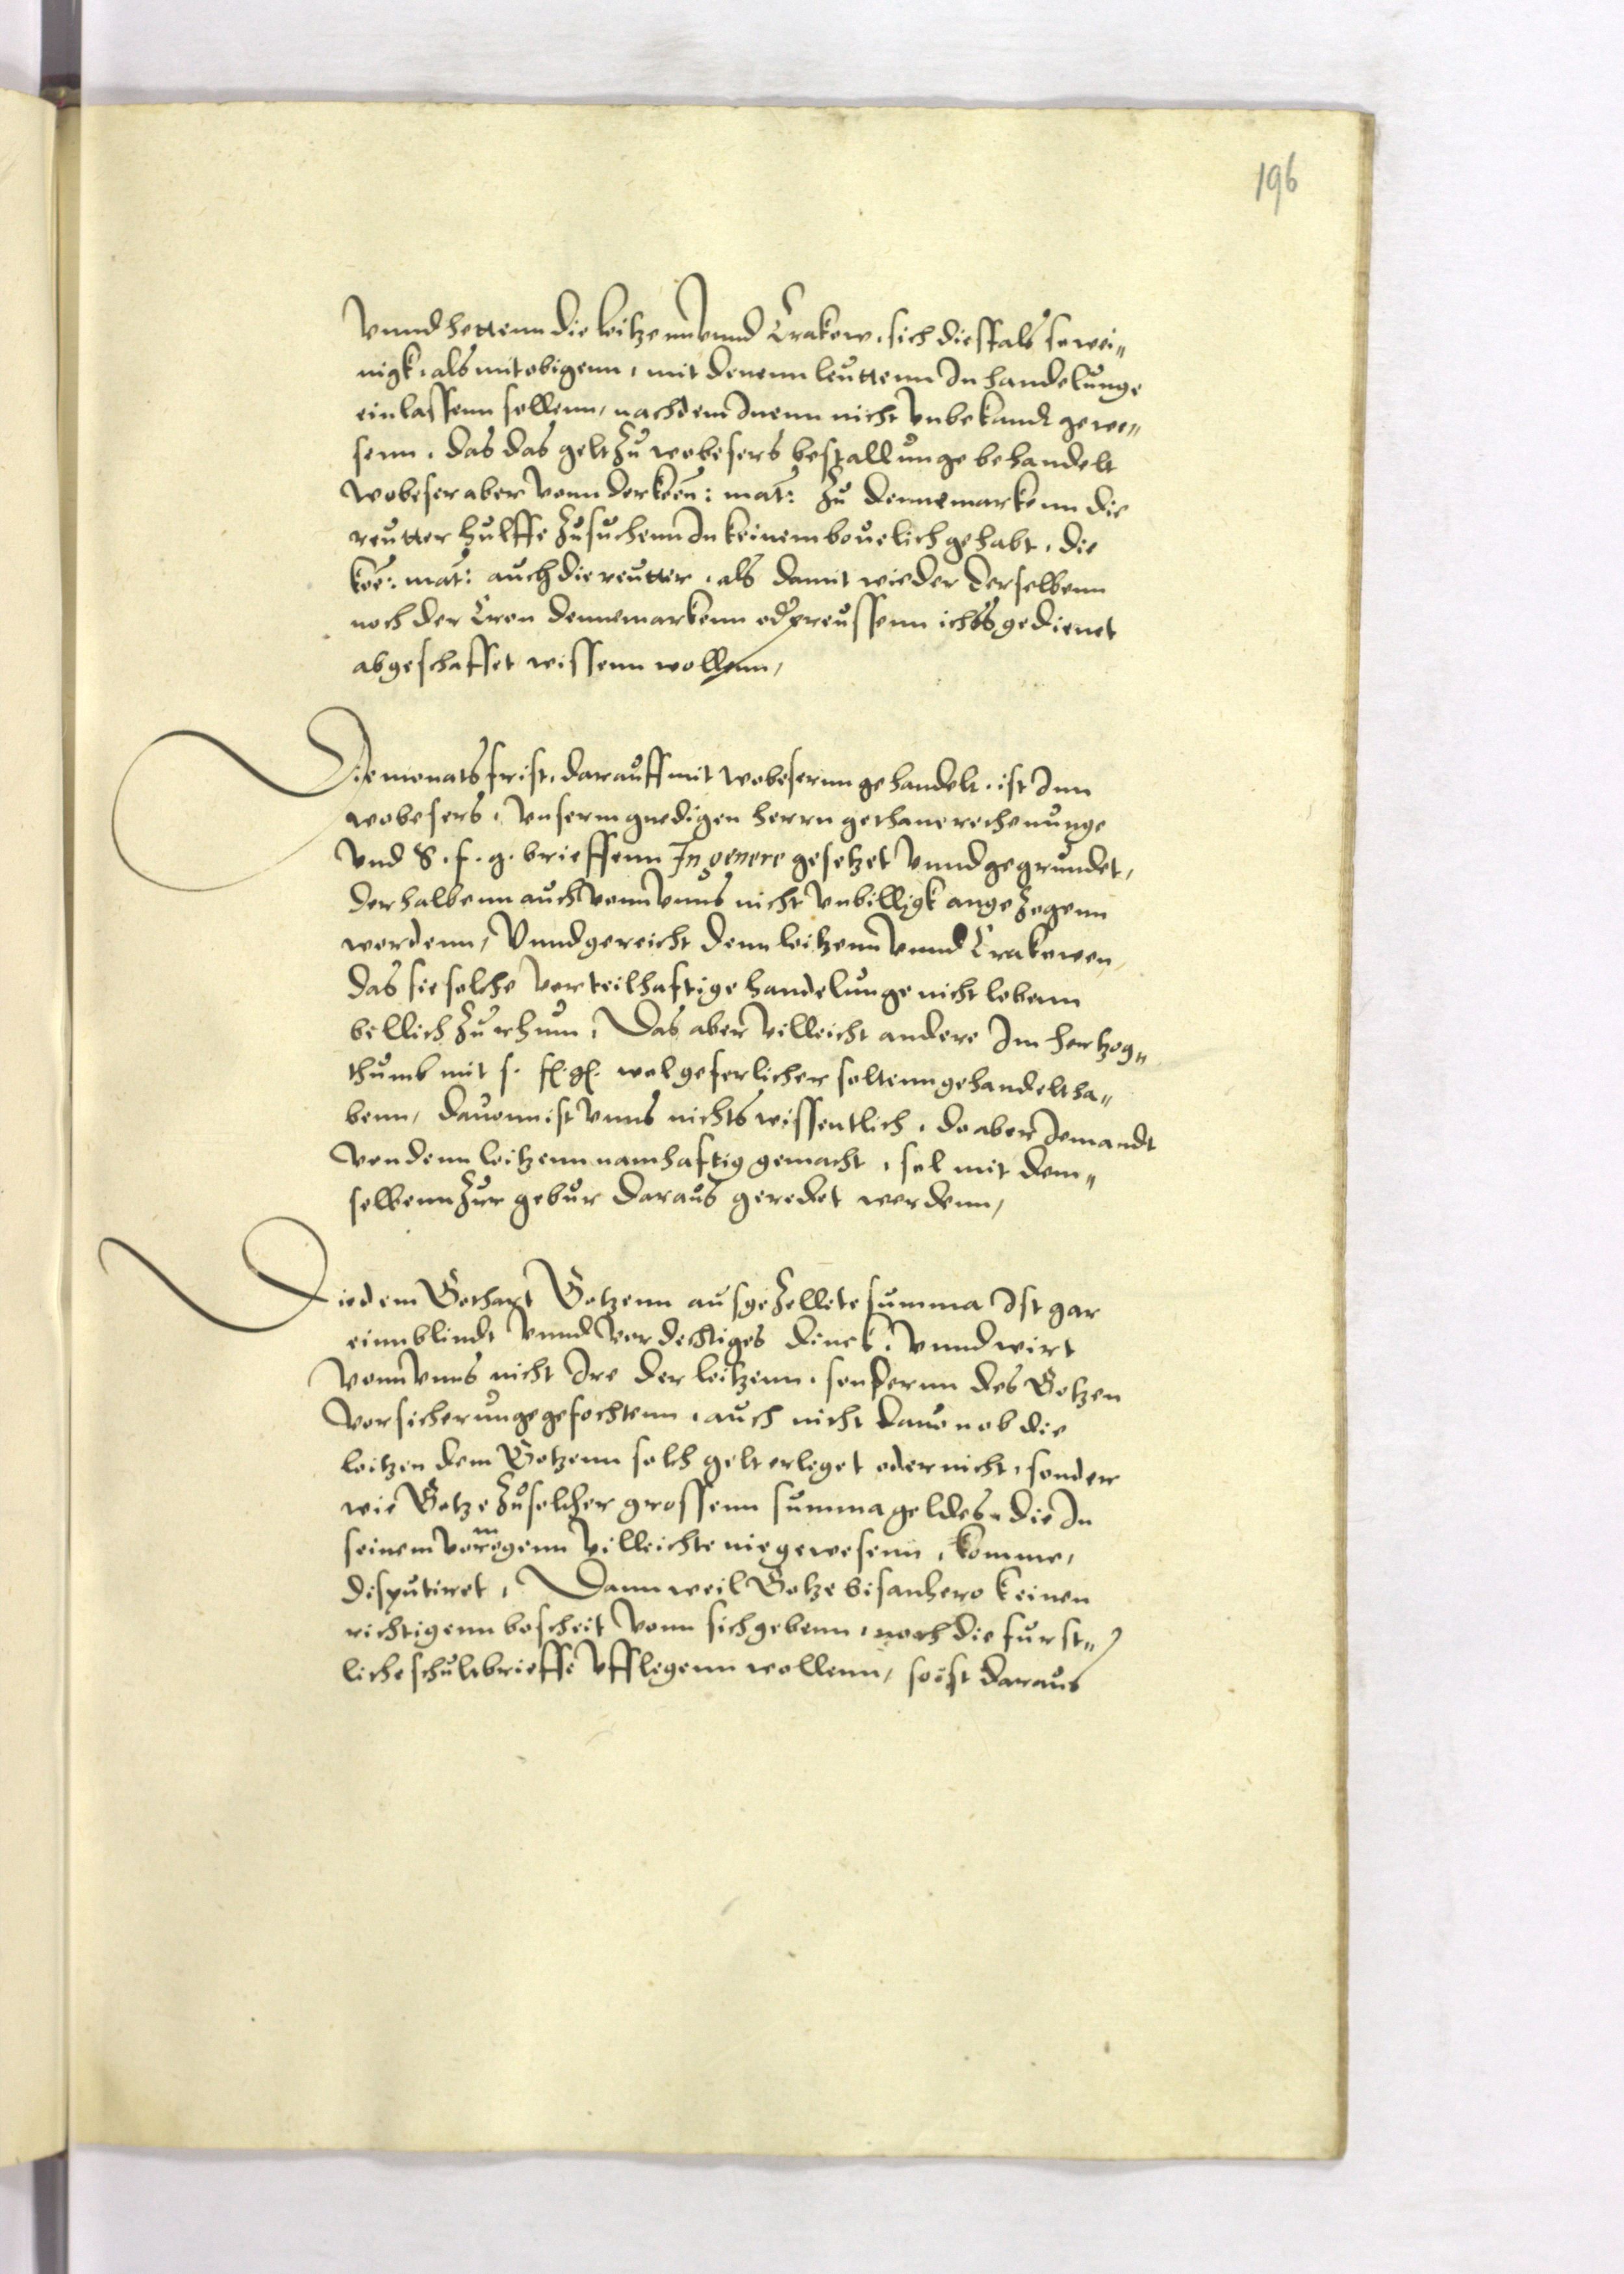 196
Vnnd hettenn die leitzenn vnnd Crakow, sich diesfals so wei„
nigk, als mit obigenn, mit denenn leuttenn In handelunge
einlassenn sollenn, nachdem Inenn nicht vnbekandt gewe„
senn, das das gelt zu wobesers bestallunge behandelt
wobeser aber vonn der koen: mat: zu dennemarkenn die
reutter hulffe zusuchenn In keinem beuelich gehabt, die
koe: mat: auch die reutter, als damit wieder derselbenn
noch der Cron dennemarkenn od preussenn ichts gedienet
abgeschaffet wissenn wollenn,
Die monats frist, darauff mit wobesernn gehandelt, ist Inn
wobesers, vnserm gnedigen herrn gethane rechenunge
vnd S. f. g. brieffenn In genere gesetzet vnnd gegrundet,
derhalbenn auch vonn vnns nicht vnbilligk angezogenn
wordenn, Vnnd gereicht denn leitzenn vnnd Crakowen,
das sie solche vorteilhaftige handelunge nicht lobenn
billich zu rhum, Das aber villeicht andere Im hertzog„
thumb mit s. f. g. wol geferlicher soltenn gehandelt ha„
benn, dauonn ist vnns nichts wissentlich, do aber Jemandt
von denn leitzenn namhaftig gemacht, sol mit dem„
selbenn zur gebur daraus geredet werdenn,
Die dem Gerhart Gotzenn ausgezellete summa Ist gar
einn blindt vnnd vordechtiges dinck, vnnd wirt
vonn vnns nicht Ire der leitzenn, sondernn des Gotzen
vorsicherunge gefochtenn, auch nicht dauon ob die
leitzen dem Gotzenn solch gelt erleget oder nicht, sonder
wie Gotze zu solcher grossenn summa geldes, die In
seinem vormogenn villeichte nie gewesenn, komme,
disputiret, Dann weil Gotze bisanhero keinen
richtigenn bescheit vonn sich gebenn, noch die furst„
liche schultbrieffe vfflegenn wollenn, so ist daraus